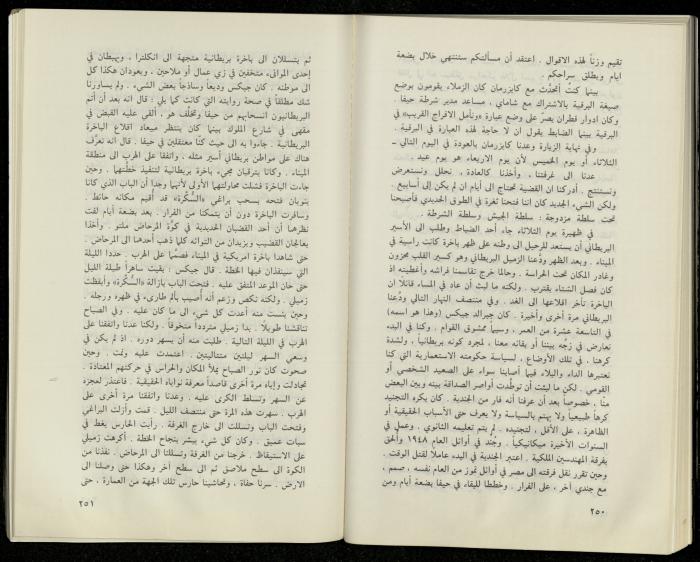 تقيم وزناً لهذه الاقوال . اعتقد أن مسألتكم ستنتهي خلال بضعة
ايام ويطلق سراحكم .
بينما كنت أتحدّث مع كايزرمان كان الزملاء يقومون بوضع
صيغة البرقية بالاشتراك مع شاماي ، مساعد مدير شرطة حيفا .
وكان ادوار قطران يصرّ على وضع عبارة «ونأمل الافراج القريب» في
البرقية بينما الضابط يقول ان لا حاجة لهذه العبارة في البرقية .
وفي نهاية الزيارة وعدنا كايزرمان بالعودة في اليوم التالي -
الثلاثاء أو يوم الخميس لأن يوم الاربعاء هو يوم عيد .
عدنا الى غرفتنا ، وأخذنا كالعادة ، نحلل ونستعرض
ونستنتج . أدركنا ان القضية تحتاج الى أيام ان لم يكن إلى أسابيع .
ولكن الشيء الجديد كان اننا فتحنا ثغرة في الطوق الحديدي فأصبحنا
تحت سلطة مزدوجة : سلطة الجيش وسلطة الشرطة .
في ظهيرة يوم الثلاثاء جاء أحد الضباط وطلب الى الأسير
البريطاني أن يستعد للرحيل الى وطنه على ظهر باخرة كانت راسية في
الميناء . وبعد الظهر ودّعنا الزميل البريطاني وهو كسير القلب محزون
وغادر المكان تحت الحراسة . وحالما خرج تقاسمنا فراشه وأغطيته اذ
كان فصل الشتاء يقترب . ولكنه ما لبث أن عاد في المساء قائلاً ان
الباخرة تأخر اقلاعها الى الغد . وفي منتصف النهار التالي ودّعنا
البريطاني مرة أخرى وأخيرة . كان جيرالد جيكس (وهذا هو اسمه)
في التاسعة عشرة من العمر ، وسيماً ممشوق القوام ، وكنا في البدء
نعارض في زجّه بيننا أو بقائه معنا ، لمجرد كونه بريطانياً ، ولشدة
كرهنا ، في تلك الأوضاع ، لسياسة حكومته الاستعمارية التي كنا
نعتبرها الداء والبلاء فيما أصابنا سواء على الصعيد الشخصي أو
القومي . لكن ما لبثت أن توطّدت أواصر الصداقة بينه وبين البعض
منّا ، خصوصاً بعد أن عرفنا أنه فار من الجندية . كان يكره التجنيد
كرهاً طبيعياً ولا يهتم بالسياسة ولا يعرف حتى الأسباب الحقيقية أو
الظاهرة ، على الأقل ، لتجنيده . لم يتم تعليمه الثانوي . وعمل في
السنوات الأخيرة ميكانيكياً . وجُنّد في أوائل العام ١٩٤٨ وألحق
بفرقة المهندسين الملكية . اعتبر الجندية في البدء عاملاً لقتل الوقت .
وحين تقرر نقل فرقته الى مصر في أوائل تموز من العام نفسه ، صمم ،
مع جندي آخر ، على الفرار . وخططا للبقاء في حيفا بضعة أيام ومن
٢٥٠
ثم يتسللان الى باخرة بريطانية متجهة الى انكلترا ، ويهبطان في
إحدى الموانىء متخفين في زي عمال أو ملاحين ، ويعودان هكذا كل
الى موطنه . كان جيكس وديعاً وساذجاً بعض الشيء . ولم يساورنا
شك مطلقاً في صحة روايته التي كانت كما يلي : قال انه بعد أن أتم
البريطانيون انسحابهم من حيفا وتخلّف هو ، ألقي عليه القبض في
مقهى في شارع الملوك بينما كان ينتظر ميعاد اقلاع الباخرة
البريطانية . جاءوا به الى حيث كنّا معتقلين في حيفا . قال انه تعرّف
هناك على مواطن بريطاني أسير مثله ، واتفقا على الهرب الى منطقة
الميناء . وكانا يترقبان مجيء باخرة بريطانية لتنفيذ خطّتهما . وحين
جاءت الباخرة فشلت محاولتهما الأولى لأنهما وجدا أن الباب الذي كانا
ينويان فتحه بسحب براغي «السُكّرة» قد أقيم مكانه حائط .
وسافرت الباخرة دون أن يتمكنا من الفرار . بعد بضعة أيام لفت
نظرهما أن أحد القضبان الحديدية في كوّة المرحاض ملتو . وأخذا
يعالجان القضيب ويزيدان من التوائه كلما ذهب أحدهما الى المرحاض .
حتى شاهدا باخرة أمريكية في الميناء ، فصمّما على الهرب . حددا الليلة
التي سينفذان فيها الخطة . قال جيكس : بقيت ساهراً طيلة الليل
حتى حان الموعد المتفق عليه . فتحت الباب بازالة «السُكّرة» وأيقظت
زميلي . ولكنه نكص وزعم أنه أُصيب بألم طارىء في ظهره ورجله .
وحين يئست منه أعدت كل شيء الى ما كان عليه . وفي الصباح
تناقشنا طويلاً . بدا زميلي متردداً متخوفاً . ولكنا عدنا واتفقنا على
الهرب في الليلة التالية . طلبت منه أن يسهر دوره . اذ لم يكن في
وسعي السهر ليلتين متتاليتين . اعتمدت عليه ونمت . وحين
صحوت كان نور الصباح يملأ المكان والحراس في حركتهم المعتادة .
تجادلت وإياه مرة أخرى قاصداً معرفة نواياه الحقيقية . فاعتذر لعجزه
عن السهر وتسلط الكرى عليه . وعدنا واتفقنا مرة أخرى على
الهرب . سهرت هذه المرة حتى منتصف الليل . قمت وأزلت البراغي
وفتحت الباب وتسللت الى خارج الغرفة . رأيت الحارس يغط في
سبات عميق . وكان كل شيء يبشر بنجاح الخطة . أكرهت زميلي
على الاستيقاظ . خرجنا من الغرفة وتسللنا الى المرحاض . نفذنا من
الكوة الى سطح ملاصق ثم الى سطح آخر وهكذا حتى وصلنا الى
الارض . سرنا حفاة ، وتحاشينا حارس تلك الجهة من العمارة ، حتى
٢٥١